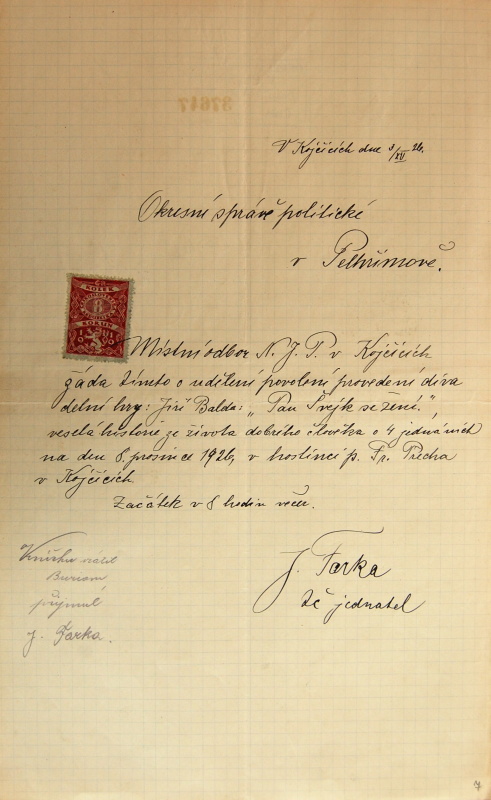 37617
V Kojčicích dne 3/XII 26.
Okresní správě politické
v Pelhřimově.
KOLEK
8
KORUN
Místní odbor N. J. P. v Kojčicích
žádá tímto o udělení povolení provedení diva
delní hry: Jiří Balda: „Pan Švejk se žení.",
veselá historie ze života dobrého člověka o 4 jednáních
na den 8. prosince 1926, v hostinci p. Fr. Prcha
v Kojčicích.
Začátek v 8 hodin večer.
J. Farka
jednatel
Knížku vrátil
Buriam
přijmul
J. Farka.
7